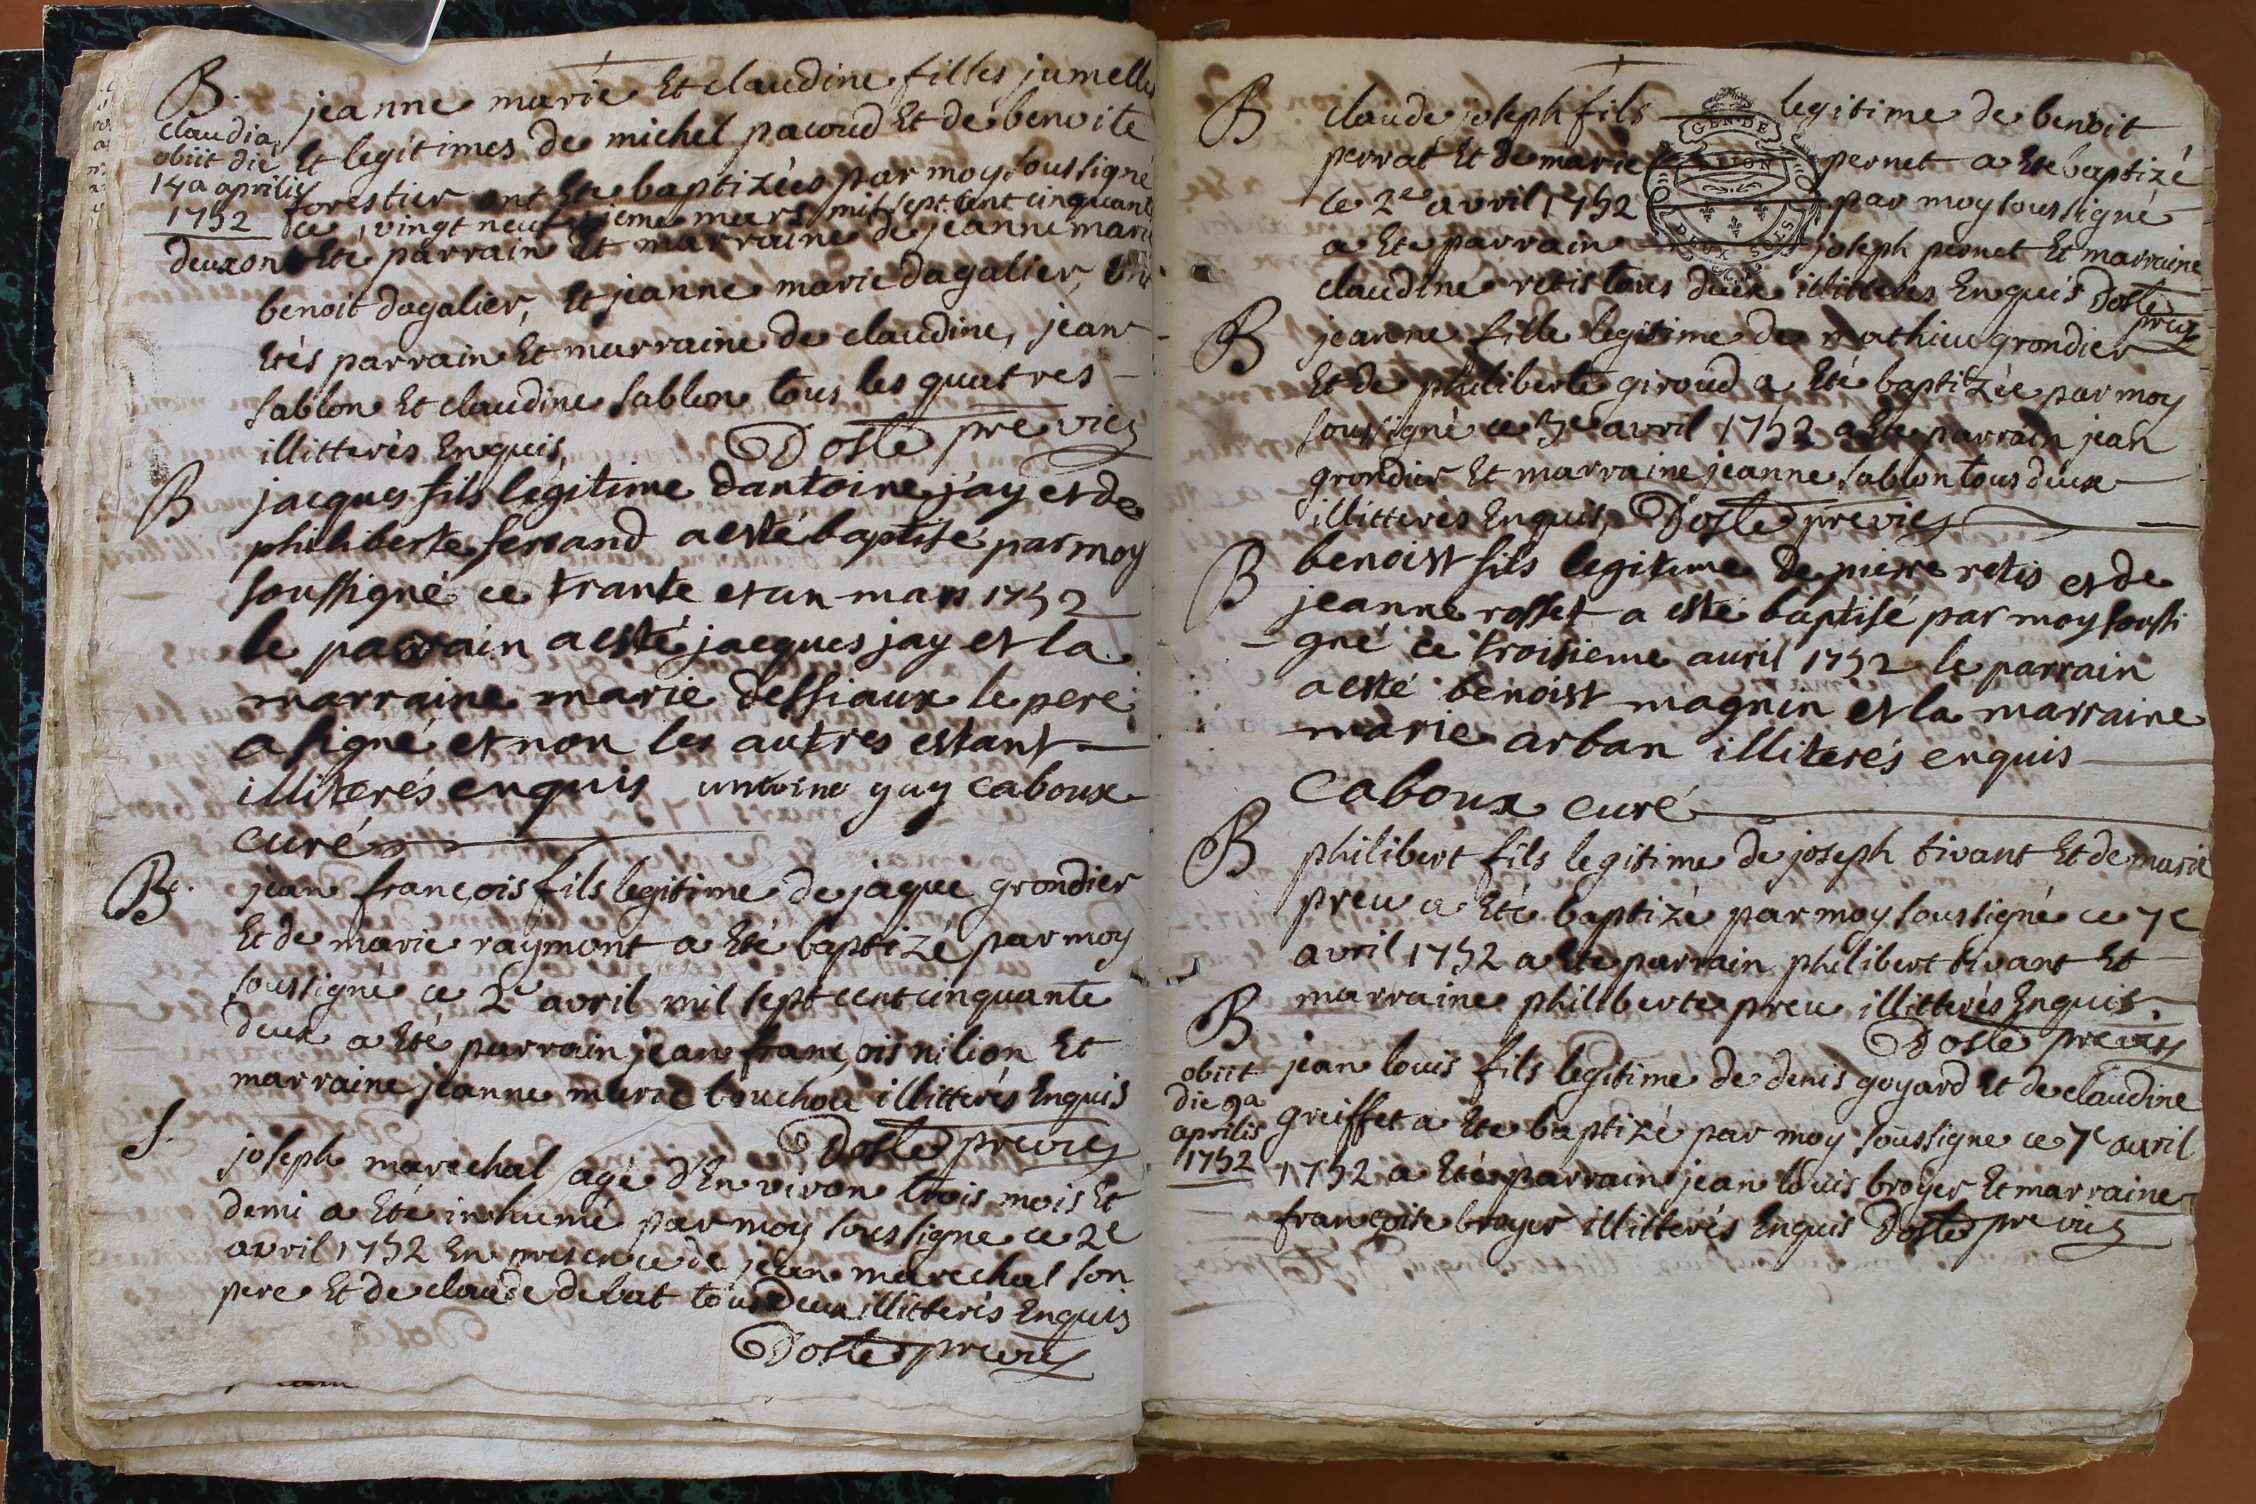 B.
jeanne marie Et claudine filles jumelles
Claudia
obiit die
14a aprilis
1752
Et legitimes de michel pacoud Et de benoite
forestier ont Eté baptizées par moy soussigné
ce vingt neufvieme mars mil sept cent cinquante
deux ont Eté parrain Et marraine de jeanne marie
benoit dagalier, Et jeanne marie dagalier, ont
Etés parrain Et marraine de claudine, jean
sablon Et claudine sablon tous les quatres
illitterés Enquis, Dosle pre vic
B
jacques fils legitime dantoine jay et de
philiberte ferrand a esté baptisé par moy
soussigné ce trante et un mars 1752
le parrain a esté jacques jay et la
marraine marie dessiaux le pere
a signé et non les autres estant
illiterés enquis antoine gay Caboux
curé
B.
jean françois fils legitime de jaque grondier
Et de marie raymont a Eté baptizé par moy
soussigné ce 2e avril mil sept cent cinquante
deux a Eté parrain jean françois nilion Et
marraine jeanne marie bouchou illitterés Enquis
Dosle pre vic
S.
joseph marechal agé d'Environ trois mois Et
demi a Eté inhumé par moy soussigné ce 2e
avril 1752 En presence de jean marechal son
pere Et de claude debat tous deux illitterés Enquis
Dosle pre vic
B
claude joseph fils legitime de benoit
GEN. DE
perrat Et de marie pernet a Eté baptizé
ce 2e avril 1752 par moy soussigné
a Eté parrain joseph pernet Et marraine
DEUX SOLS
claudine retis tous deux illitterés Enquis Dosle
pre vic
B
jeanne fille legitime de mathieu grondier
Et de philiberte giroud a Eté baptizée par moy
soussigné ce 3e avril 1752 a Eté parrain jean
grondier Et marraine jeanne sablon tous deux
illitterés Enquis, Dosle pre vic
B
benoist fils legitime de pierre retis et de
jeanne rosset a esté baptisé par moy soussi
gné ce troisieme avril 1752 le parrain
a esté benoist magnin et la marraine
marie arban illiterés enquis
Caboux curé
B
philibert fils legitime de joseph tivant Et de marie
preu a Eté baptizé par moy soussigné ce 7e
avril 1752 a Eté parrain philibert tivant Et
marraine philiberte preu illitterés Enquis.
Dosle pre vic
B
obiit
die 9a
aprilis
1752
jean louis fils legitime de denis goyard Et de claudine
greiffet a Eté baptizé par moy soussigné ce 7e avril
1752 a Eté parrain jean louis broyer Et marraine
françoise broyer illitterés Enquis Dosle pre vic